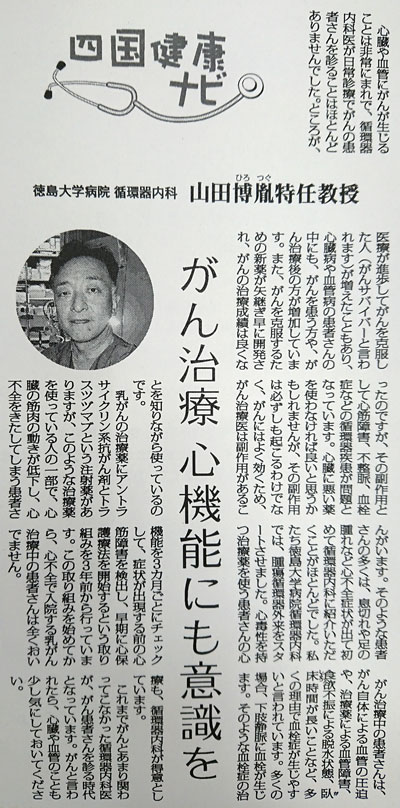 四国健康
ナビ
心臓や血管にがんが生じる
ことは非常にまれで、循環器
内科医が日常診療でがんの患
者さんを診ることはほとんど
ありませんでした。ところが、
徳島大学病院 循環器内科 山田博胤特任教授
ひろ つぐ
がん治療 心機能にも意識を
医療が進歩してがんを克服し
た人（がんサバイバーと言わ
れます）が増えたこともあり、
心臓病や血管病の患者さんの
中にも、がんを患う方や、が
ん治療後の方が増加していま
す。また、がんを克服するた
めの新薬が矢継ぎ早に開発さ
れ、がんの治療成績は良くな
ったのですが、その副作用と
して心筋障害、不整脈、血栓
症などの循環器疾患が問題と
なっています。心臓に悪い薬
を使わなければ良いと思うか
もしれませんが、その副作用
は必ずしも起こるわけでな
く、がんにはよく効くため、
がん治療医は副作用があるこ
とを知りながら使っているの
です。
乳がんの治療薬にアントラ
サイクリン系抗がん剤とトラ
スツズマブという注射薬があ
りますが、このような治療薬
を使っている人の一部で、心
臓の筋肉の動きが低下し、心
不全をきたしてしまう患者さ
んがいます。そのような患者
さんの多くは、息切れや足の
腫れなど心不全症状が出て初
めて循環器内科に紹介いただ
くことがほとんどでした。私
たち徳島大学病院循環器内科
では、腫瘍循環器外来をスタ
ートさせました。心毒性を持
つ治療薬を使う患者さんの心
機能を3カ月ごとにチェック
して、症状が出現する前の心
筋障害を検出し、早期に心保
護療法を開始するという取り
組みを3年前から行っていま
す。この取り組みを始めてか
ら、心不全で入院する乳がん
治療中の患者さんは全くおい
でません。
がん治療中の患者さんは、
がん自体による血管の圧迫
や、治療薬による血管障害、
食欲不振による脱水状態、臥
床時間が長いことなど、多
くの理由で血栓症が生じやす
いと言われています。多くの
場合、下肢静脈に血栓が生じ
ます。そのような血栓症の治
療も、循環器内科が得意とし
ています。
これまでがんとあまり関わ
ってこなかった循環器内科医
が、がん患者さんを診る時代
となっています。がんと言わ
れたら、心臓や血管のことも
少し気にしておいてくださ
い。